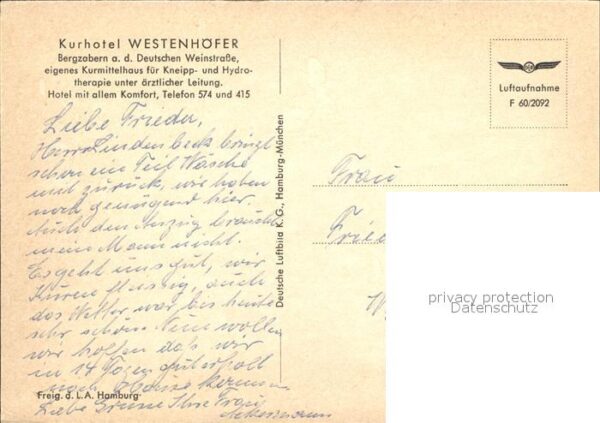 Kurhotel WESTENHÖFER
Bergzabern a. d. Deutschen Weinstraße,
eigenes Kurmittelhaus für Kneipp- und Hydro-
therapie unter ärztlicher Leitung.
Hotel mit allem Komfort, Telefon 574 und 415
Liebe Frieda,
Herr Lindenbeck bringt
schon ein Teil Wäsche
mit zurück, wir haben
noch genügend hier.
Auch den Anzug braucht
mein Mann nicht.
Es geht uns gut, wir
Kuren fleissig, auch
das Wetter war bis heute
sehr schön. Nun wollen
wir hoffen daß wir
in 14 Tagen gut erholt
nach Hause kommen
Liebe Grüsse Ihre Frau
Freig. d. L.A. Hamburg
Deutsche Luftbild K.G., Hamburg-München
Luftaufnahme
F 60/2092
Frau
Fried
W
privacy protection
Datenschutz